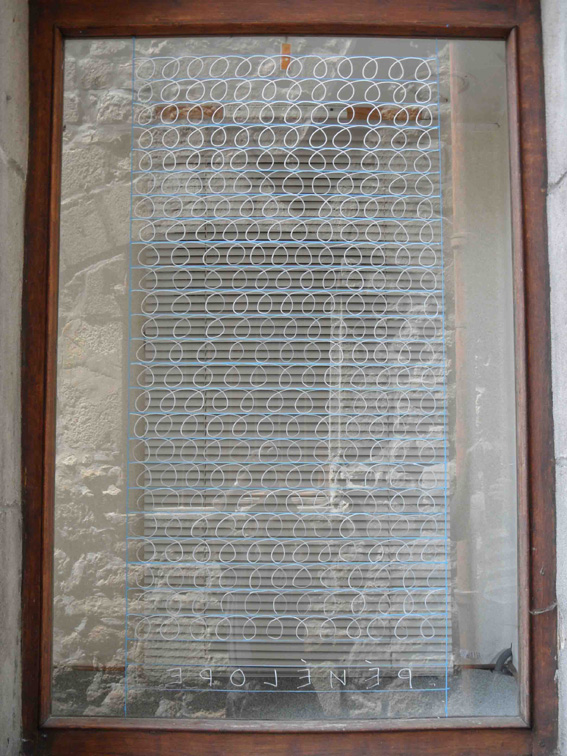 PÉNÉLOPE